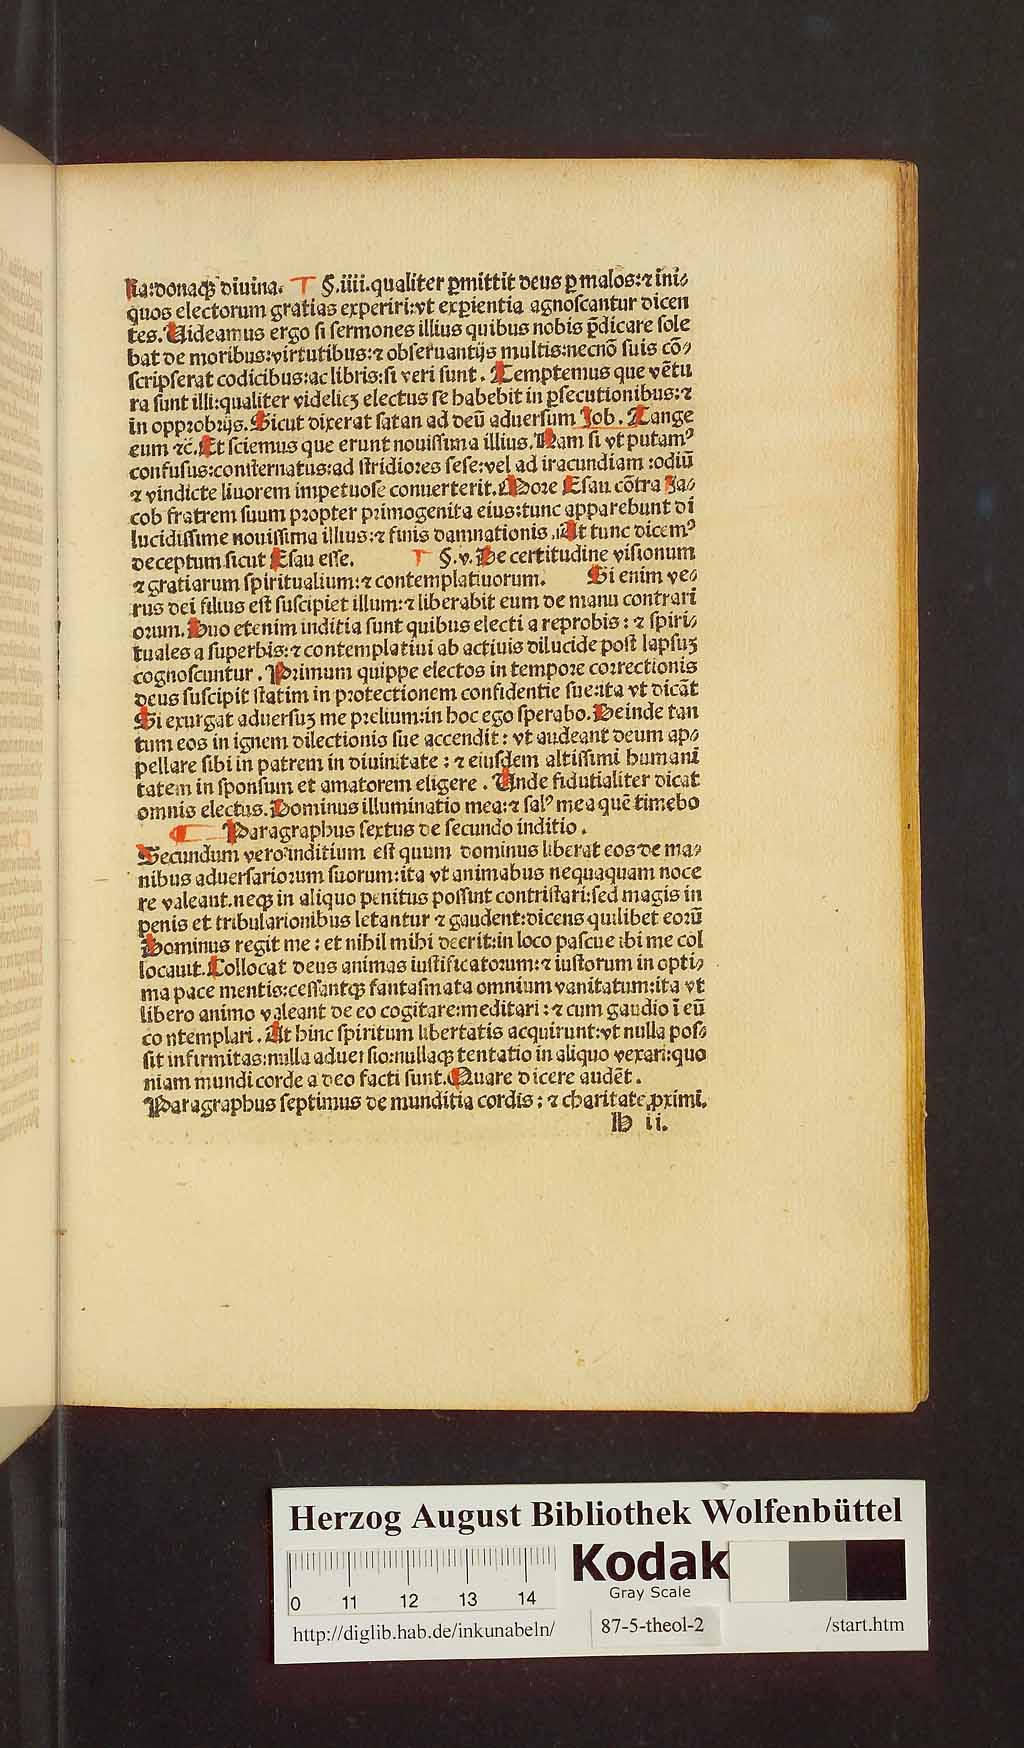 lia:donaqʒ diuina. §.iiii.qualiter ꝑmittit deus ꝑ malos:⁊ ini⸗
quos electorum gratias experiri:vt expientia agnoscantur dicen
tes. Uideamus ergo si sermones illius quibus nobis p̄dicare sole
bat de moribus:virtutibus:⁊ obseruantijs multis:necnō suis cō⸗
scripserat codicibus:ac libris:si veri sunt. Temptemus que vētu
ra sunt illi:qualiter videlicʒ electus se habebit in ꝑsecutionibus:⁊
in opprobrijs. Sicut dixerat satan ad deū aduersum Job. Tange
eum ⁊c̄. Et sciemus que erunt nouissima illius. Nam si vt putamꝰ
confusus:consternatus:ad stridiores sese:vel ad iracundiam :odiū
⁊ vindicte liuorem impetuose conuerterit. More Esau cōtra Ja⸗
cob fratrem suum propter primogenita eius:tunc apparebunt di
lucidissime nouissima illius:⁊ finis damnationis. At tunc dicemꝰ
deceptum sicut Esau esse. §.v. De certitudine visionum
⁊ gratiarum spiritualium:⁊ contemplatiuorum. Si enim ve⸗
rus dei filius est suscipiet illum:⁊ liberabit eum de manu contrari
orum. Duo etenim inditia sunt quibus electi a reprobis: ⁊ spiri⸗
tuales a superbis:⁊ contemplatiui ab actiuis dilucide post lapsuʒ
cognoscuntur. Primum quippe electos in tempore correctionis
deus suscipit statim in protectionem confidentie sue:ita vt dicāt
Si exurgat aduersuʒ me prelium:in hoc ego sperabo. Deinde tan
tum eos in ignem dilectionis sue accendit: vt audeant deum ap⸗
pellare sibi in patrem in diuinitate: ⁊ eiusdem altissimi humani
tatem in sponsum et amatorem eligere. Unde fidutialiter dicat
omnis electus. Dominus illuminatio mea:⁊ salꝰ mea quē timebo
Paragraphus sextus de secundo inditio.
Secundum vero inditium est quum dominus liberat eos de ma⸗
nibus aduersariorum suorum:ita vt animabus nequaquam noce
re valeant.neqʒ in aliquo penitus possunt contristari:sed magis in
penis et tribularionibus letantur ⁊ gaudent:dicens quilibet eorū
Dominus regit me: et nihil mihi deerit:in loco pascue ibi me col
locauit. Collocat deus animas iustificatorum:⁊ iustorum in opti⸗
ma pace mentis:cessantqʒ fantasmata omnium vanitatum:ita vt
libero animo valeant de eo cogitare:meditari: ⁊ cum gaudio ī eū
contemplari. At hinc spiritum libertatis acquirunt:vt nulla pos⸗
sit infirmitas:nulla aduersio:nullaqʒ tentatio in aliquo vexari:quo
niam mundi corde a deo facti sunt. Quare dicere audēt.
Paragraphus septimus de munditia cordis: ⁊ charitate ꝓximi.
h ii.
Herzog August Bibliothek Wolfenbüttel
Kodak
Gray Scale
0 11 12 13 14
http://diglib.hab.de/inkunabeln/ 87-5-theol-2 /start.htm